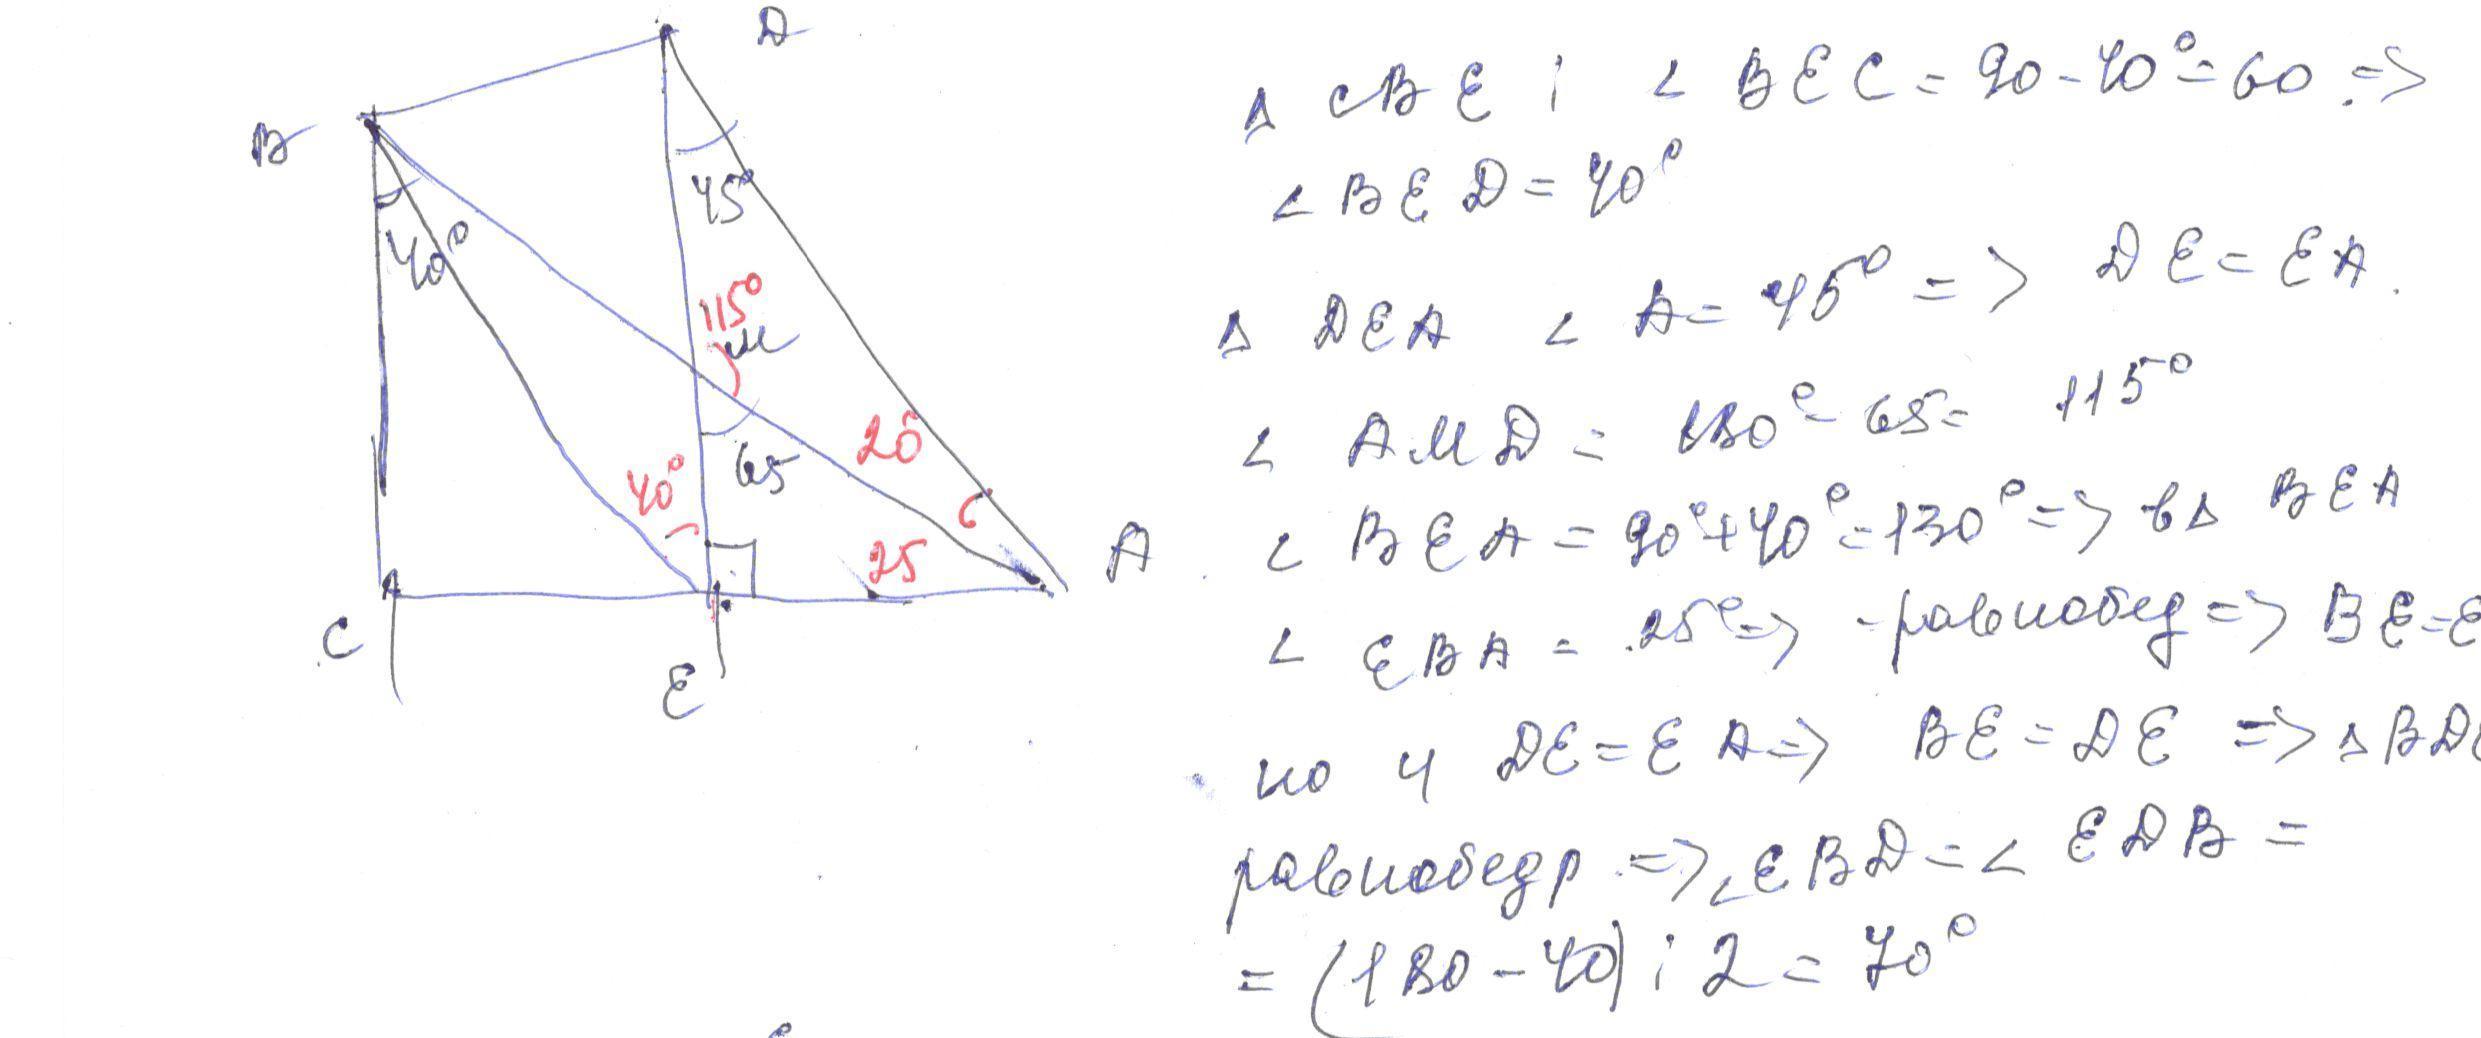 D
B
45°
40°
115°
M
20°
65
40°
25
A
C
E
Δ CBE : < BEC = 90 - 40° = 60 =>
< BED = 40°
Δ DEA < A = 45° => DE = EA.
< AMD = 180° - 65 = 115°
< BEA = 90° + 40° = 130° => в Δ BEA
< EBA = 25° => - равнобед => BE = E
но и DE = EA => BE = DE => Δ BDE
равнобедр => < EBD = < EDB =
= (180 - 40) : 2 = 70°